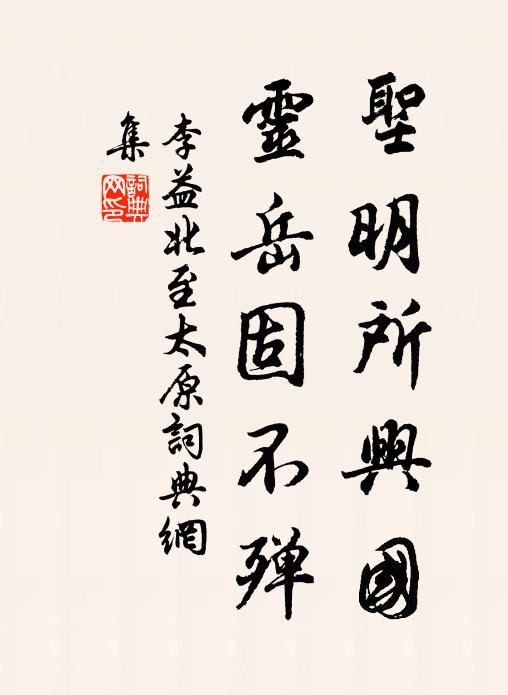 聖明所興國
靈岳固不殫
李益北至太原詞典網
集
詞典
网印